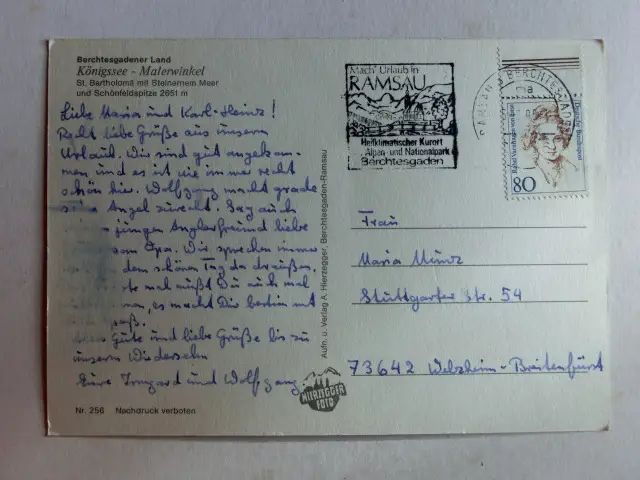 Berchtesgadener Land
Königssee - Malerwinkel
St. Bartholomä mit Steinernem Meer
und Schönfeldspitze 2651 m
Liebe Maria und Karl-Heinz!
Recht liebe Grüße aus unserm
Urlaub. Wir sind gut angekom-
men und es ist wie immer recht
schön hier. Wolfgang macht grade
Angel zurecht. Sag auch
jungen Anglerfreund liebe
vom Opa. Wir sprechen immer
dem schönen Tag da draußen.
mal mußt Du auch mal
es macht Dir bestimmt
paß.
Gute und liebe Grüße bis zu
unserm Wiedersehn
Eure Irmgard und Wolfgang
Nr. 256 Nachdruck verboten
Aufn. u. Verlag A. Hierzegger, Berchtesgaden-Ramsau
HIERZEGGER
FOTO
Mach' Urlaub in
RAMSAU
Heilklimatischer Kurort
Alpen- und Nationalpark
Berchtesgaden
BERCHTESGADEN
ma
Deutsche Bundespost
80
Frau
Maria Münz
Stuttgarter Str. 54
73642 Welzheim-Breitenfürst